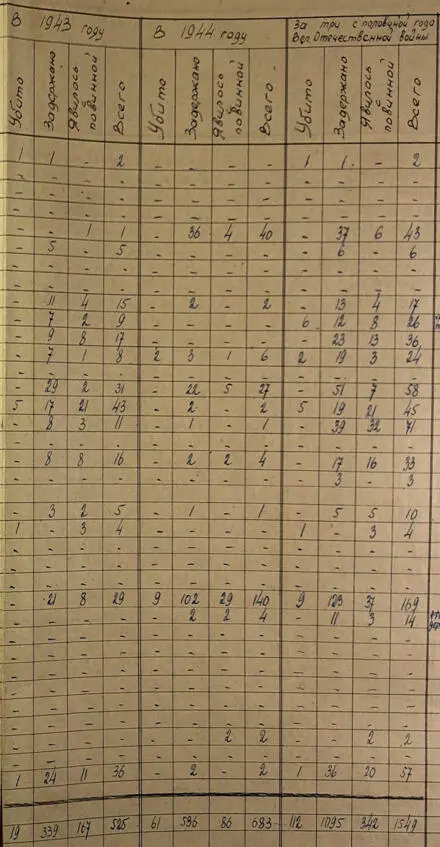 В 1943 году В 1944 году За три с половиной года
Вел. Отечественной войны
Убито Задержано Явилось с повинной Всего Убито Задержано Явилось с повинной Всего Убито Задержано Явилось с повинной Всего
1 1 - 2 - - - - 1 1 - 2
- - - - - - - - - - - -
- - - - - - - - - - - -
- - - - - - - - - - - -
- - 1 1 - 36 4 40 - 37 6 43
- 5 - 5 - - - - - 6 - 6
- - - - - - - - - - - -
- - - - - - - - - - - -
- 11 4 15 - 2 - 2 - 13 4 17
- 7 2 9 - - - - 6 12 8 26
- 9 8 17 - - - - - 23 13 36
- 7 1 8 2 3 1 6 2 19 3 24
- 29 2 31 - 22 5 27 - 51 7 58
5 17 21 43 - 2 - 2 5 19 21 45
- 8 3 11 - 1 - 1 - 39 32 71
- - - - - - - - - - - -
- 8 8 16 - 2 2 4 - 17 16 33
- - - - - - - - - 3 - 3
- 3 2 5 - 1 - 1 - 5 5 10
1 - 3 4 - - - - 1 - 3 4
- - - - - - - - - - - -
- - - - - - - - - - - -
- - - - - - - - - - - -
- 21 8 29 9 102 29 140 9 123 37 169
- - - - - 2 2 4 - 11 3 14
- - - - - - - - - - - -
- - - - - - - - - - - -
- - - - - - - - - - - -
- - - - - - - - - - - -
- - - - - - - - - - - -
- - - - - - 2 2 - - 2 2
- - - - - - - - - - - -
1 24 11 36 - 2 - 2 1 36 20 57
19 339 167 525 61 536 86 683 112 1095 342 1549